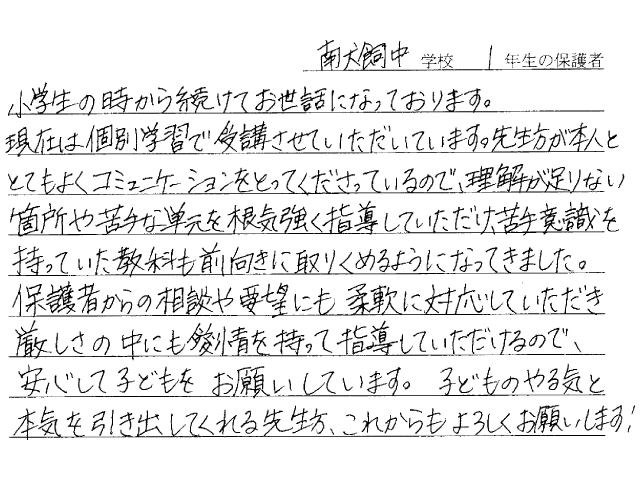 南犬飼中 学校 1 年生の保護者
小学生の時から続けてお世話になっております。
現在は個別学習で受講させていただいています。先生方が本人と
とてもよくコミュニケーションをとってくださっているので、理解が足りない
箇所や苦手な単元を根気強く指導していただけ、苦手意識を
持っていた教科も前向きに取りくめるようになってきました。
保護者からの相談や要望にも柔軟に対応していただき
厳しさの中にも愛情を持って指導していただけるので、
安心して子どもをお願いしています。子どものやる気と
本気を引き出してくれる先生方、これからもよろしくお願いします!